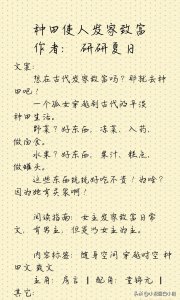 种田使人发家致富
作者： 研研夏日
文案：
想在古代发家致富吗？那就去种
田吧！
一个孤女穿越到古代的平淡
种田生活。
野菜？好东西，冻菜、入药，
做面食。
水果？好东西，果汁、糕点，
做罐头。
这些东西统统好吃不贵！为啥？
因为她有空间啊！
阅读指南：女主发家致富日常
文，有男主，但是以女主为主。
内容标签：随身空间 穿越时空 种
田文 爽文
主角：房言 ┃ 配角：童锦元 ┃
其它：